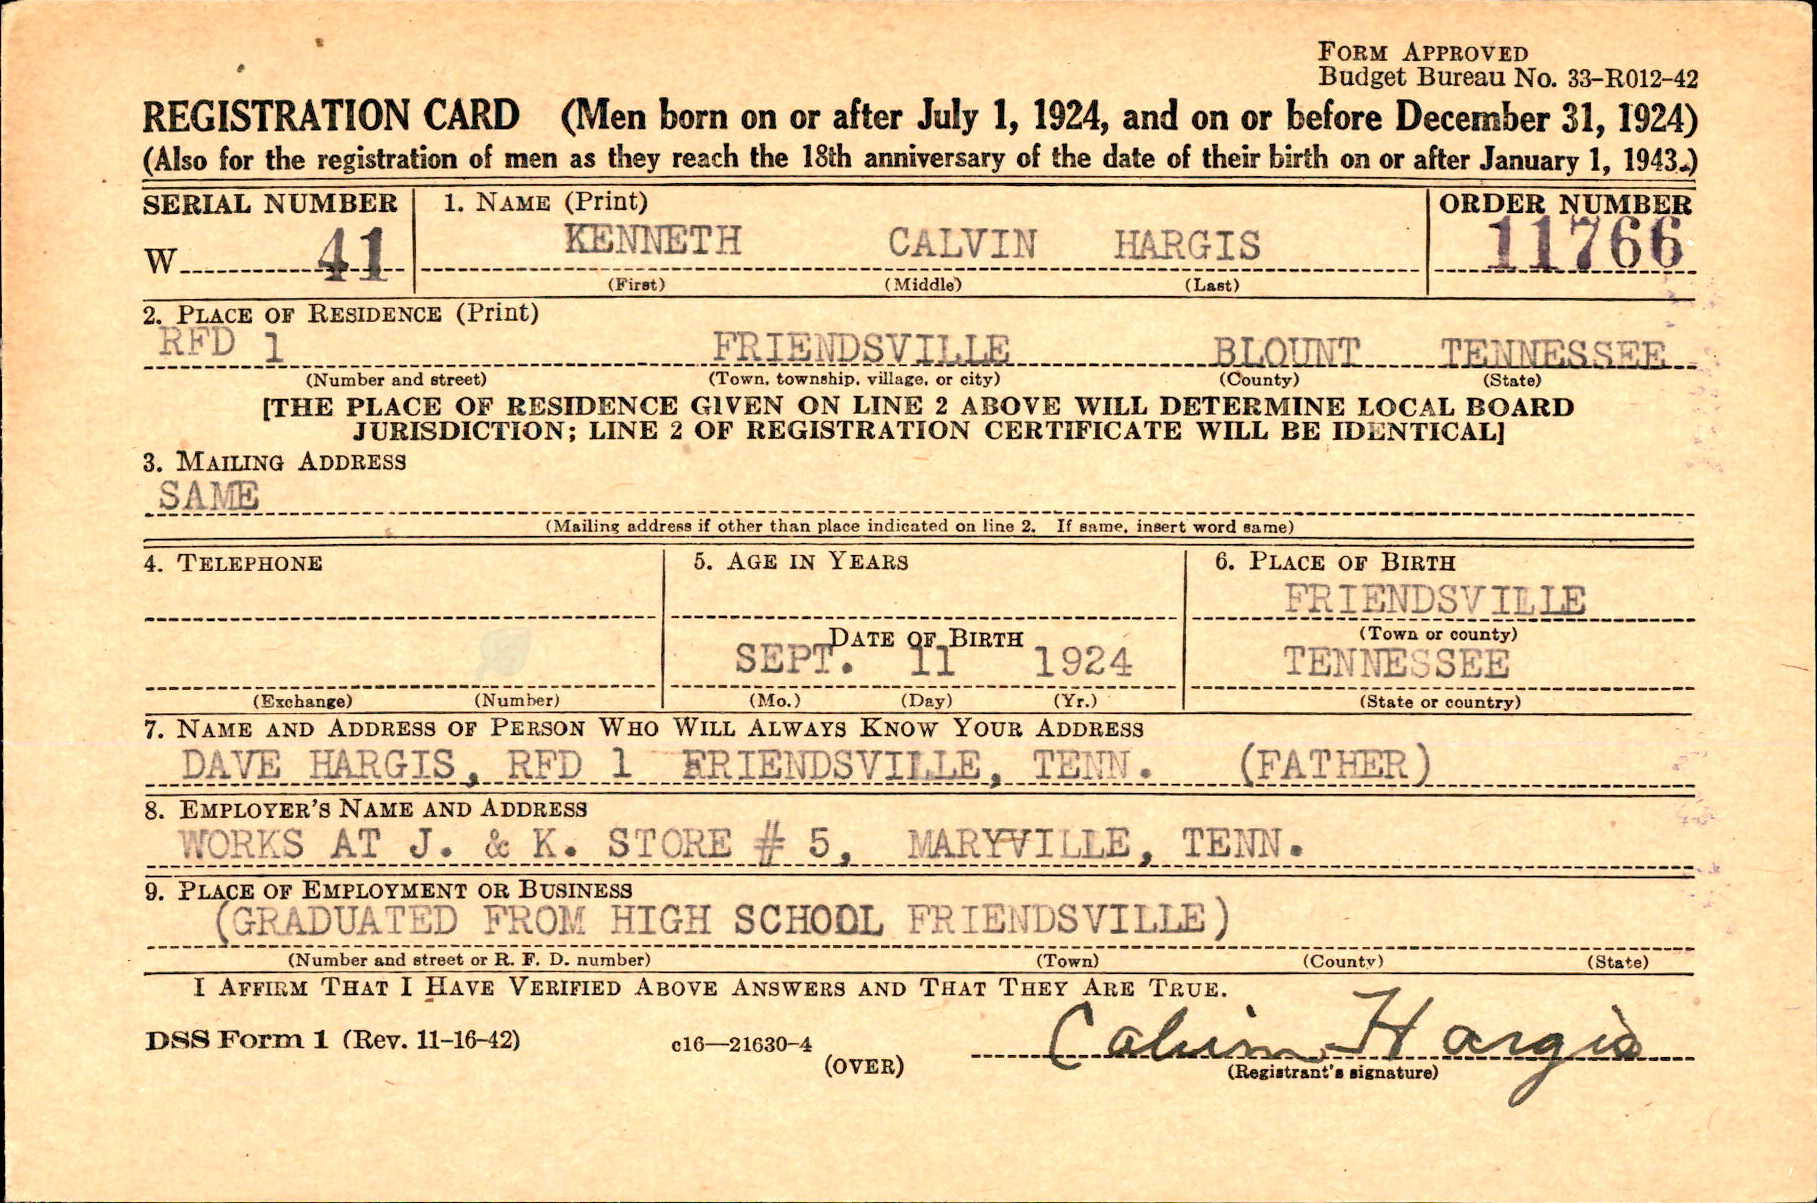 FORM APPROVED
Budget Bureau No. 33-R012-42
REGISTRATION CARD (Men born on or after July 1, 1924, and on or before December 31, 1924)
(Also for the registration of men as they reach the 18th anniversary of the date of their birth on or after January 1, 1943.)
SERIAL NUMBER 1. NAME (Print) ORDER NUMBER
W 41 KENNETH CALVIN HARGIS 11766
(First) (Middle) (Last)
2. PLACE OF RESIDENCE (Print)
RFD 1 FRIENDSVILLE BLOUNT TENNESSEE
(Number and street) (Town, township, village, or city) (County) (State)
[THE PLACE OF RESIDENCE GIVEN ON LINE 2 ABOVE WILL DETERMINE LOCAL BOARD
JURISDICTION; LINE 2 OF REGISTRATION CERTIFICATE WILL BE IDENTICAL]
3. MAILING ADDRESS
SAME
(Mailing address if other than place indicated on line 2. If same, insert word same)
4. TELEPHONE 5. AGE IN YEARS 6. PLACE OF BIRTH
FRIENDSVILLE
DATE OF BIRTH (Town or county)
SEPT. 11 1924 TENNESSEE
(Exchange) (Number) (Mo.) (Day) (Yr.) (State or country)
7. NAME AND ADDRESS OF PERSON WHO WILL ALWAYS KNOW YOUR ADDRESS
DAVE HARGIS, RFD 1 FRIENDSVILLE, TENN. (FATHER)
8. EMPLOYER'S NAME AND ADDRESS
WORKS AT J. & K. STORE # 5, MARYVILLE, TENN.
9. PLACE OF EMPLOYMENT OR BUSINESS
(GRADUATED FROM HIGH SCHOOL FRIENDSVILLE)
(Number and street or R. F. D. number) (Town) (County) (State)
I AFFIRM THAT I HAVE VERIFIED ABOVE ANSWERS AND THAT THEY ARE TRUE.
DSS Form 1 (Rev. 11-16-42) c16—21630-4 (OVER) Calvin Hargis
(Registrant's signature)